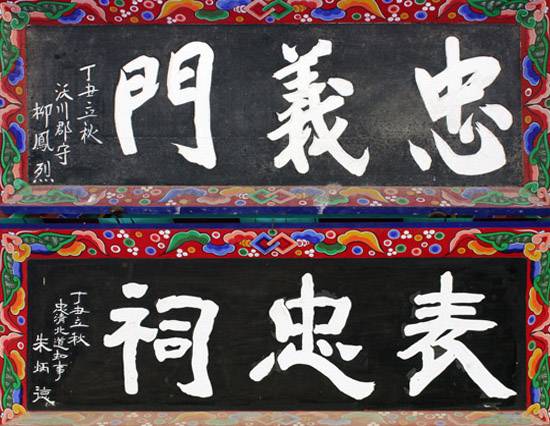 忠義門
丁丑立秋
沃川郡守
柳鳳烈
表忠祠
丁丑立秋
忠淸北道知事
朱炳德